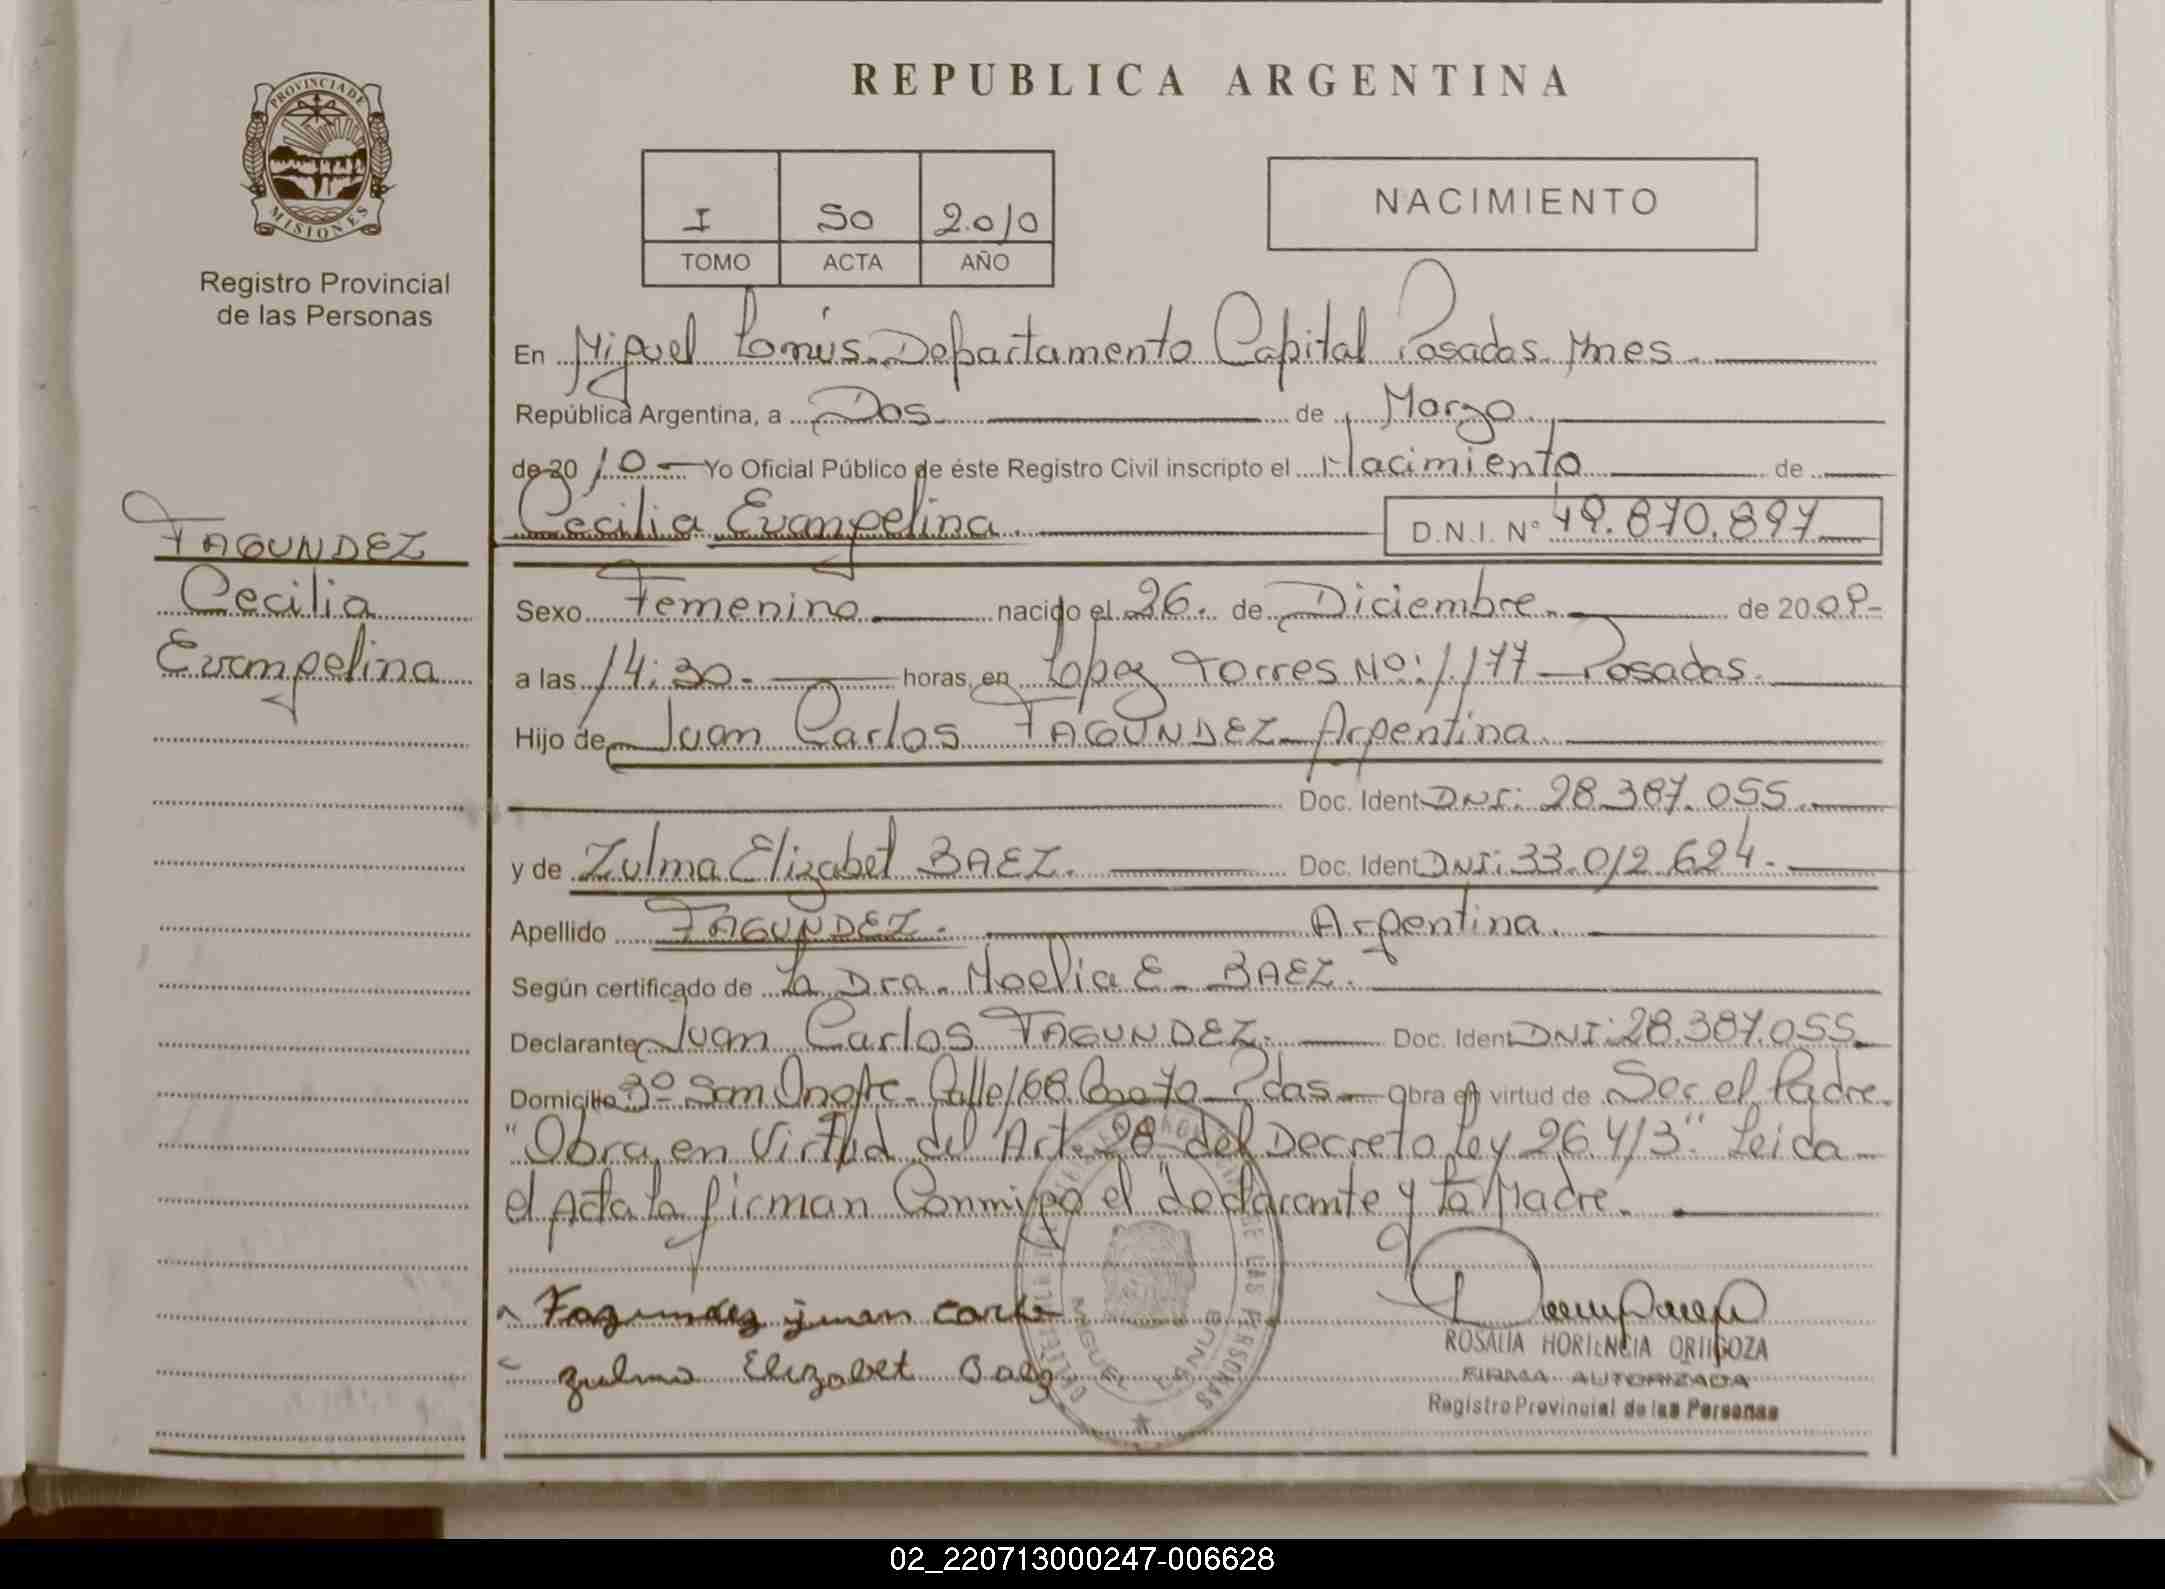 PROVINCIA DE
MISIONES
Registro Provincial
de las Personas
FAGUNDEZ
Cecilia
Evangelina
REPUBLICA ARGENTINA
I 50 2.010
TOMO ACTA AÑO
NACIMIENTO
En Miguel Lanús. Departamento Capital Posadas Mnes.
República Argentina, a Dos de Marzo
de 20 10 Yo Oficial Público de éste Registro Civil inscripto el Nacimiento de
Cecilia Evangelina. D.N.I. Nº 49.870.897
Sexo Femenino nacido el 26. de Diciembre. de 20 09-
a las 14:30- horas, en Lopez Torres Nº: 1.177 - Posadas.
Hijo de Juan Carlos FAGUNDEZ - Argentina.
Doc. Ident DNI: 28.387.055
y de Zulma Elizabet BAEZ. Doc. Ident DNI: 33.012.624.-
Apellido FAGUNDEZ. Argentina.
Según certificado de La Dra. Noelia E. BAEZ.
Declarante Juan Carlos FAGUNDEZ. Doc. Ident DNI: 28.387.055.
Domicilio San Onofre - Calle 168 Casa 70 - Pdas - Obra en virtud de Ser el Padre.
"Obra en Virtud del Art. 28 del Decreto Ley 26.413" Leida
el Acta la firman Conmigo el declarante y la Madre.
Fagundez juan carlo
zulma Elizabet Baez
DE LAS PERSONAS
MIGUEL LANUS
ROSALIA HORTENCIA ORTIGOZA
FIRMA AUTORIZADA
Registro Provincial de las Personas
02_220713000247-006628